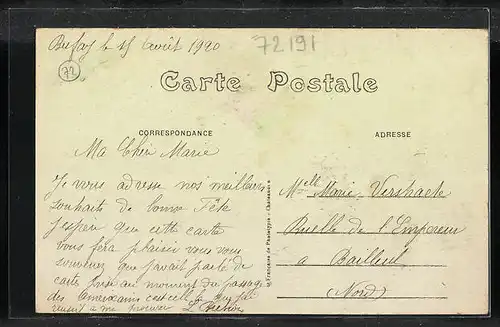 le 15 Août 1920
72191
72
Carte Postale
CORRESPONDANCE
ADRESSE
Ma Chère Marie
Je vous adresse nos meilleurs
souhaits de bonne Fête
j'espère que cette carte
vous fera plaisir vous vous
souvenez que j'avait parlé de
carte prise au moment du passage
des Américains c'est celle
réussit à me procurer
Melle Marie Verschaete
Ruelle de l'Empereur
a Bailleul
(Nord)